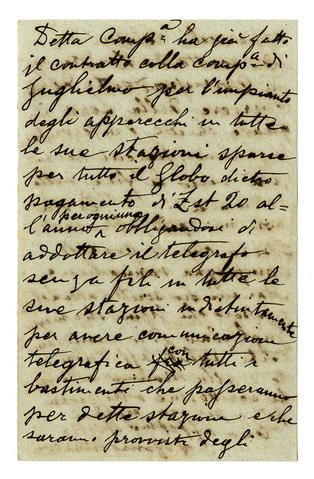 Detta Comp.ª ha già fatto
il contratto colla comp.ª di
Guglielmo per l'impianto
degli apparecchi in tutte
le sue stazioni sparse
per tutto il Globo dietro
pagamento di Lst 20 al-
l'anno per ognuna obbligandosi di
addottare il telegrafo
senza fili in tutte le
sue stazioni indistintamente
per avere comunicazione
telegrafica con tutti i
bastimenti che passeranno
per dette stazioni e che
saranno provvisti degli